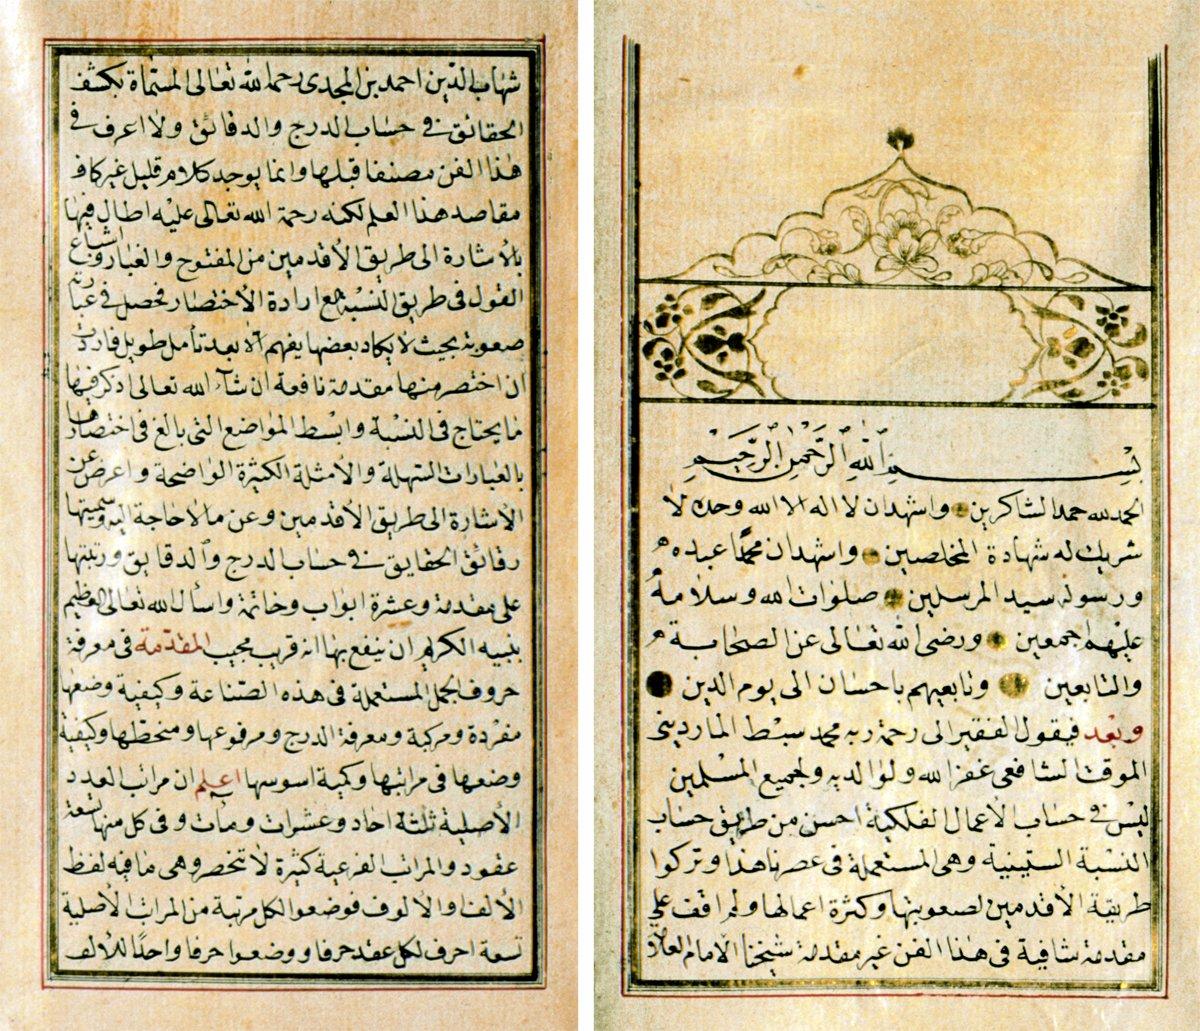 بسم الله الرحمن الرحيم
الحمد لله حمد الشاكرين واشهد ان لا اله الا الله وحده لا
شريك له شهادة المخلصين واشهد ان محمدا عبده
ورسوله سيد المرسلين صلوات الله وسلامه
عليهم اجمعين ورضى الله تعالى عن الصحابة
والتابعين وتابعيهم باحسان الى يوم الدين
وبعد فيقول الفقير الى رحمة ربه محمد سبط الماردينى
الموقت الشافعى غفر الله ولوالديه ولجميع المسلمين
ليس فى حساب الاعمال الفلكية احسن من طريق حساب
النسبة الستينية وهى المستعملة فى عصرنا هذا وتركوا
طريقة الأقدمين لصعوبتها وكثرة اعمالها ولم اقف على
مقدمة شافية فى هذا الفن غير مقدمة شيخنا الامام العلاّ
شهاب الدين احمد بن المجدى رحمه الله تعالى المسمّاة بكشف
الحقائق فى حساب الدرج والدقائق ولا اعرف فى
هذا الفن مصنفا قبلها وانما يوجد كلام قليل غير كاف
مقاصد هذا العلم لكنه رحمة الله تعالى عليه اطال فيها
بالأشارة الى طريق الأقدمين من المفتوح والغبار واشباع
القول فى طريق النسبة مع ارادة الأختصار فحصل فى عبارته
صعوبة بحيث لا يكاد بعضها يفهم الا بعد تأمل طويل فاردت
ان اختصر منها مقدمة نافعة ان شآء الله تعالى اذكر فيها
ما يحتاج فى النسبة وابسط المواضع التى بالغ فى اختصارها
بالعبارات السهلة والأمثلة الكثيرة الواضحة واعرض عن
الأشارة الى طريق الأقدمين وعن ما لا حاجة اليه وسميتها
رقائق الحقايق فى حساب الدرج والدقايق ورتبتها
على مقدمة وعشرة ابواب وخاتمة واسأل الله تعالى العظيم
بنبيه الكريم ان ينفع بها انه قريب مجيب المقدّمة فى معرفة
حروف الجمل المستعملة فى هذه الصناعة وكيفية وضعها
مفردة ومركبة ومعرفة الدرج ومرفوعها ومنحطها وكيفية
وضعها فى مراتبها وكمية اسوسها اعلم ان مراتب العدد
الأصلية ثلثة احاد وعشرات ومأت وفى كل منها تسعة
عقود والمراتب الفرعية كثيرة لا تنحصر وهى ما فيه لفظ
الألف والألوف فوضعوا لكل مرتبة من المراتب الأصلية
تسعة احرف لكل عقد حرفا ووضعوا حرفا واحدًا للألف